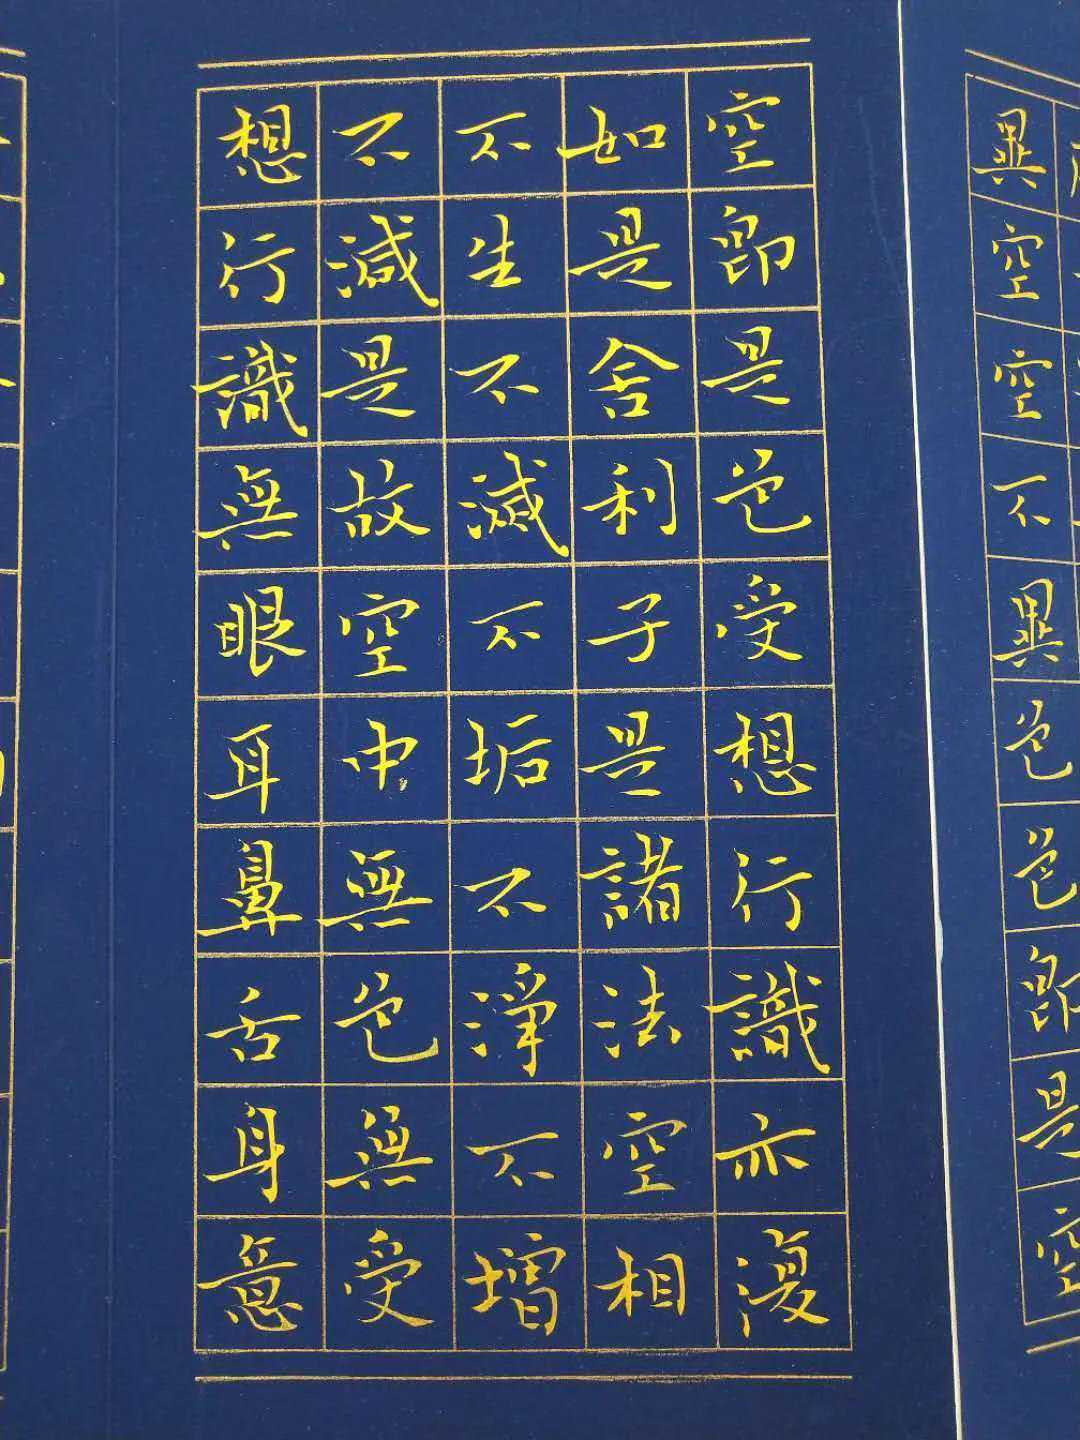 異空空不異色色即是空
空即是色受想行識亦復
如是舍利子是諸法空相
不生不滅不垢不淨不增
不減是故空中無色無受
想行識無眼耳鼻舌身意